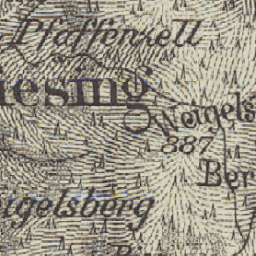 Pfaffenzell
iesing
Weigels
887
Ber
igelsberg